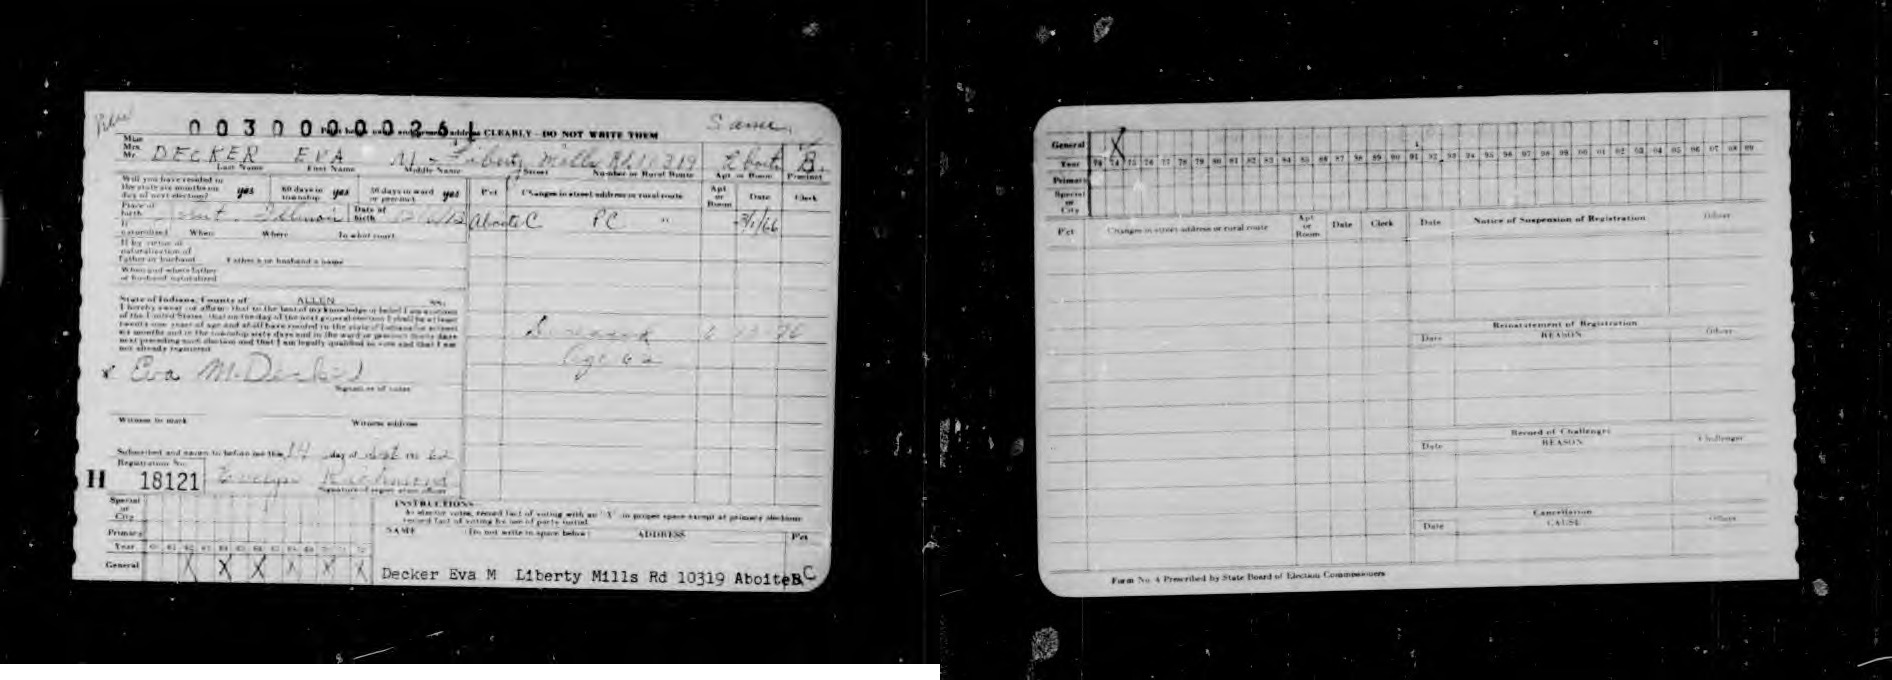 0030000261
Print below name and present address CLEARLY - DO NOT WRITE THEM
Same
Miss
Mrs.
Mr. DECKER EVA M - Liberty Mills Rd 10319 Aboite B
Last Name First Name Middle Name Street Number or Rural Route Apt or Room Precinct
Will you have resided in the state six months on day of next election? yes 60 days in township yes 30 days in ward or precinct yes
Pct Changes in street address or rural route Apt or Room Date Clerk
Place of birth Date of birth
Aboite C PC " 3/1/66
If naturalized When Where In what court
If by virtue of naturalization of Father or husband Father's or husband's name
When and where father or husband naturalized
State of Indiana, County of ALLEN ss.
I hereby swear (or affirm) that to the best of my knowledge or belief I am a citizen
of the United States, that on the day of the next general election I shall be at least
twenty-one years of age and shall have resided in the state of Indiana for at least
six months and in the township sixty days and in the ward or precinct thirty days
next preceding such election and that I am legally qualified to vote and that I am
not already registered
Deceased
Age 62
x Eva M. Decker
Signature of voter
Witness to mark Witness address
Subscribed and sworn to before me this 14 day of Sept 19 62
Registration No.
H 18121 Evelyn
Signature of registration officer
INSTRUCTIONS
As elector votes, record fact of voting with an "X" in proper space except at primary elections
record fact of voting by use of party initial.
Special or City
Primary
Year
General X X X X X X
NAME (Do not write in space below) ADDRESS Pct
Decker Eva M Liberty Mills Rd 10319 Aboite B C
General X
Year 73 74 75 76 77 78 79 80 81 82 83 84 85 86 87 88 89 90 91 92 93 94 95 96 97 98 99 00 01 02 03 04 05 06 07 08 09
Primary
Special or City
Pct Changes in street address or rural route Apt or Room Date Clerk Date Notice of Suspension of Registration Officer
Reinstatement of Registration
Date REASON Officer
Record of Challenges
Date REASON Challenger
Cancellation
Date CAUSE Officer
Form No. 4 Prescribed by State Board of Election Commissioners